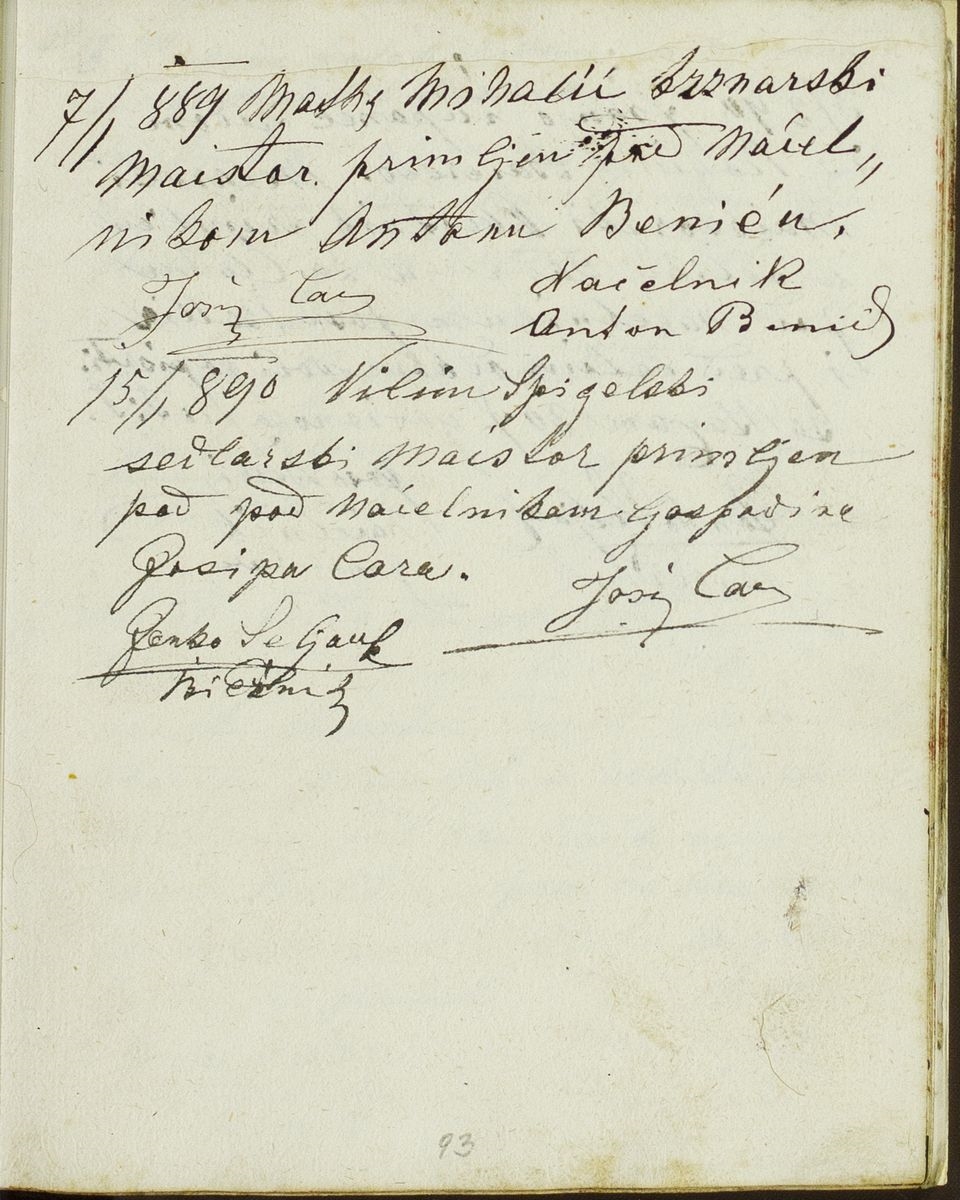 7/1 889 Mathy Mihalić krznarski
Maistor. primljen pred Načel„
nikom Antonu Beniću.
Josip Car
Načelnik
Anton Benić
15/1 890 Vilim Spigelski
sedlarski Maistor primljen
pod pod Načelnikam Gospodina
Josipa Cara.
Josip Car
Janko Seljan
93